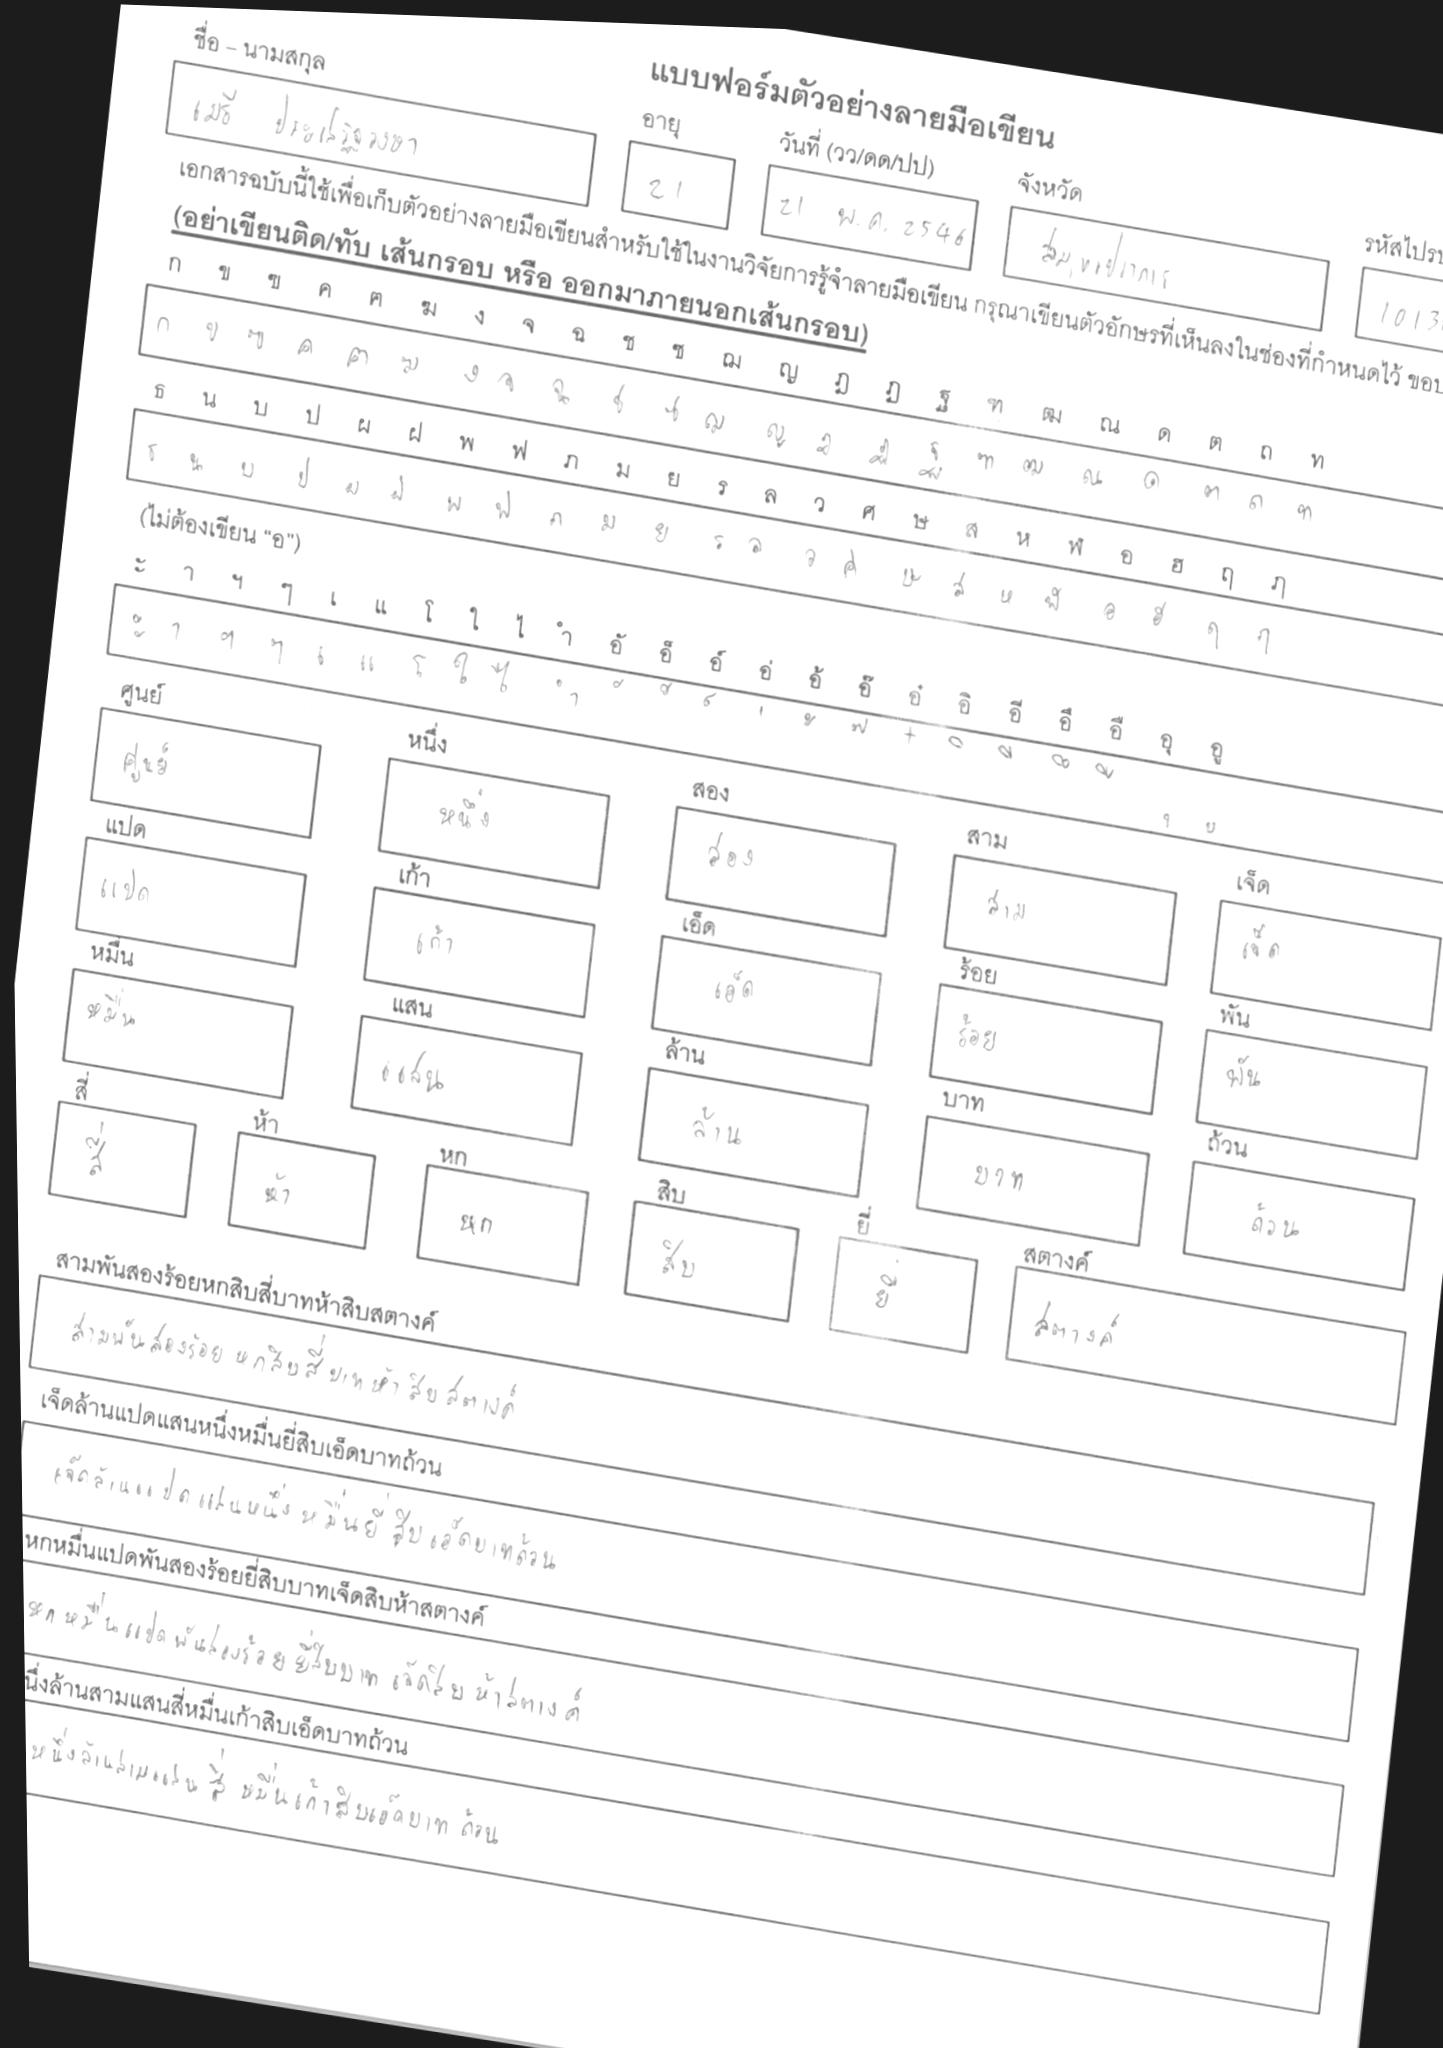 แบบฟอร์มตัวอย่างลายมือเขียน
ชื่อ – นามสกุล อายุ วันที่ (วว/ดด/ปป) จังหวัด
เมธี 21 21 พ.ค. 2546 สมุทรปราการ
เอกสารฉบับนี้ใช้เพื่อเก็บตัวอย่างลายมือเขียนสำหรับใช้ในงานวิจัยการรู้จำลายมือเขียน กรุณาเขียนตัวอักษรที่เห็นลงในช่องที่กำหนดไว้
(อย่าเขียนติด/ทับ เส้นกรอบ หรือ ออกมาภายนอกเส้นกรอบ)
ก ข ฃ ค ฅ ฆ ง จ ฉ ช ซ ฌ ญ ฎ ฏ ฐ ฑ ฒ ณ ด ต ถ ท
ก ข ฃ ค ฅ ฆ ง จ ฉ ช ซ ฌ ญ ฎ ฏ ฐ ฑ ฒ ณ ด ต ถ ท
ธ น บ ป ผ ฝ พ ฟ ภ ม ย ร ล ว ศ ษ ส ห ฬ อ ฮ ฤ ฦ
ธ น บ ป ผ ฝ พ ฟ ภ ม ย ร ล ว ศ ษ ส ห ฬ อ ฮ ฤ ฦ
(ไม่ต้องเขียน "อ")
ะ า ฯ ๆ เ แ โ ใ ไ ำ อั อ็ อ์ อ่ อ้ อ๊ อ๋ อิ อี อึ อื อุ อู
ะ า ฯ ๆ เ แ โ ใ ไ ำ ั ็ ์ ่ ้ ๊ ๋ ิ ี ึ ื ุ ู
ศูนย์ หนึ่ง สอง สาม เจ็ด
ศูนย์ หนึ่ง สอง สาม เจ็ด
แปด เก้า เอ็ด ร้อย พัน
แปด เก้า เอ็ด ร้อย พัน
หมื่น แสน ล้าน บาท ถ้วน
หมื่น แสน ล้าน บาท ถ้วน
สี่ ห้า หก สิบ ยี่ สตางค์
สี่ ห้า หก สิบ ยี่ สตางค์
สามพันสองร้อยหกสิบสี่บาทห้าสิบสตางค์
สามพันสองร้อยหกสิบสี่บาทห้าสิบสตางค์
เจ็ดล้านแปดแสนหนึ่งหมื่นยี่สิบเอ็ดบาทถ้วน
เจ็ดล้านแปดแสนหนึ่งหมื่นยี่สิบเอ็ดบาทถ้วน
หกหมื่นแปดพันสองร้อยยี่สิบบาทเจ็ดสิบห้าสตางค์
หกหมื่นแปดพันสองร้อยยี่สิบบาทเจ็ดสิบห้าสตางค์
นึ่งล้านสามแสนสี่หมื่นเก้าสิบเอ็ดบาทถ้วน
หนึ่งล้านสามแสนสี่หมื่นเก้าสิบเอ็ดบาทถ้วน